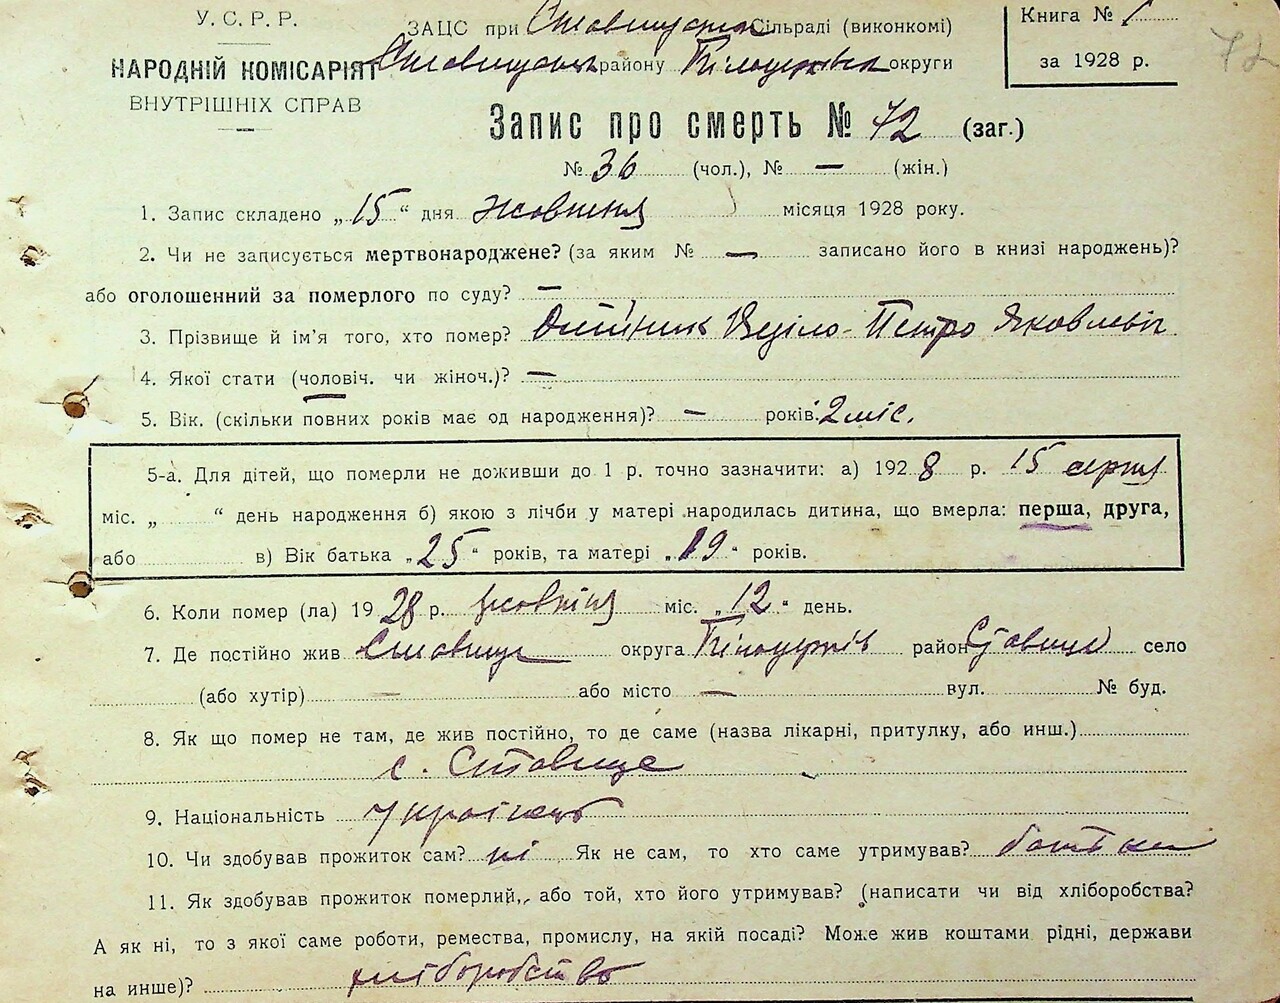 У.С.Р.Р.
НАРОДНІЙ КОМІСАРІЯТ
ВНУТРІШНІХ СПРАВ
ЗАЦС при Ставищанськ Сільраді (виконкомі)
Ставищанськ району Білоцерківськ округи
Книга № 1
за 1928 р.
72
Запис про смерть № 72 (заг.)
№ 36 (чол.), № — (жін.)
1. Запис складено „15“ дня жовтня місяця 1928 року.
2. Чи не записується мертвонароджене? (за яким № — записано його в книзі народжень)?
або оголошенний за померлого по суду? —
3. Прізвище й ім'я того, хто помер? Петро Яковлевіч
4. Якої стати (чоловіч. чи жіноч.)? —
5. Вік. (скільки повних років має од народження)? — років. 2 міс.
5-а. Для дітей, що померли не доживши до 1 р. точно зазначити: а) 1928 р. 15 серпня
міс. „ “ день народження б) якою з лічби у матері народилась дитина, що вмерла: перша, друга,
або в) Вік батька „25“ років, та матері „19“ років.
6. Коли помер (ла) 1928 р. жовтня міс. „12“ день.
7. Де постійно жив Ставище округа Білоцерків район Ставище село
(або хутір) — або місто — вул. № буд.
8. Як що помер не там, де жив постійно, то де саме (назва лікарні, притулку, або инш.)
с. Ставище
9. Національність Українець
10. Чи здобував прожиток сам? ні Як не сам, то хто саме утримував? батьки
11. Як здобував прожиток померлий, або той, хто його утримував? (написати чи від хліборобства?
А як ні, то з якої саме роботи, ремества, промислу, на якій посаді? Може жив коштами рідні, держави
на инше)? хліборобство